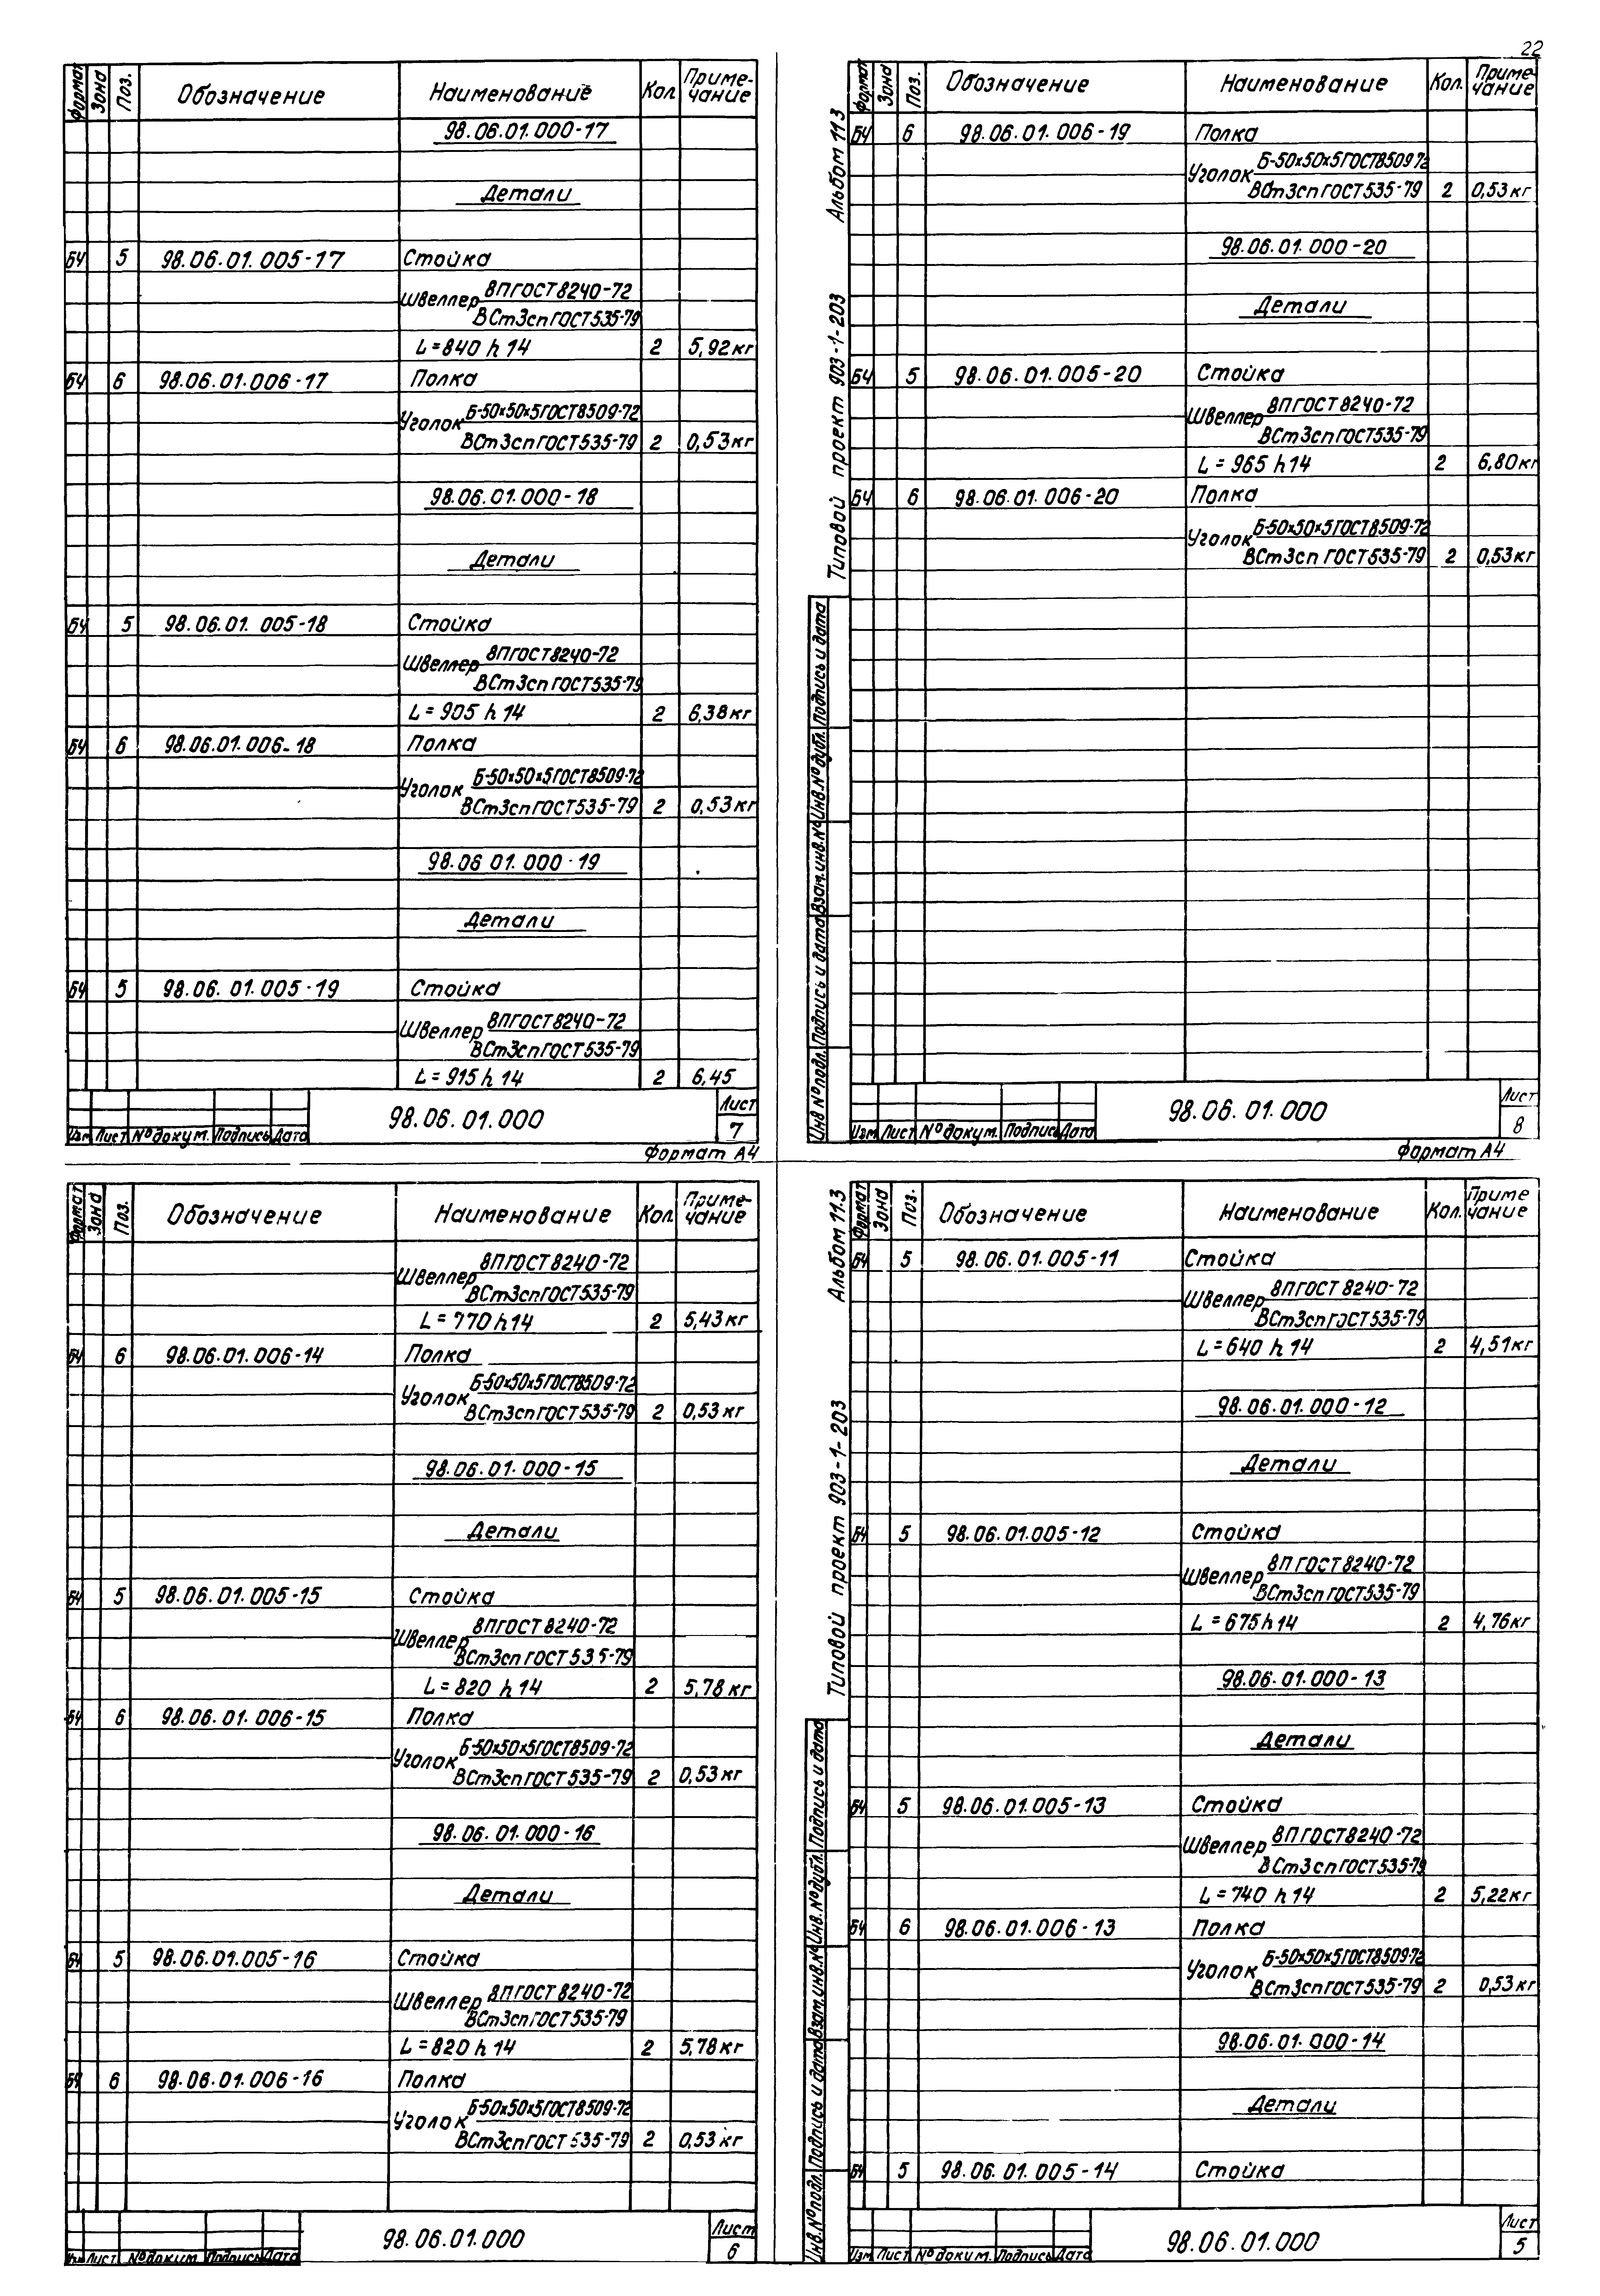 22
Формат Зона Поз. Обозначение Наименование Кол. Приме-чание
98.06.01.000-17
Детали
БЧ 5 98.06.01.005-17 Стойка
Швеллер 8П ГОСТ 8240-72
ВСт3сп ГОСТ 535-79
L=840 h14 2 5,92кг
БЧ 6 98.06.01.006-17 Полка
Уголок Б-50х50х5 ГОСТ 8509-72
ВСт3сп ГОСТ 535-79 2 0,53кг
98.06.01.000-18
Детали
БЧ 5 98.06.01.005-18 Стойка
Швеллер 8П ГОСТ 8240-72
ВСт3сп ГОСТ 535-79
L=905 h14 2 6,38кг
БЧ 6 98.06.01.006-18 Полка
Уголок Б-50х50х5 ГОСТ 8509-72
ВСт3сп ГОСТ 535-79 2 0,53кг
98.06 01.000-19
Детали
БЧ 5 98.06.01.005-19 Стойка
Швеллер 8П ГОСТ 8240-72
ВСт3сп ГОСТ 535-79
L=915 h14 2 6,45
Изм Лист № докум. Подпись Дата 98.06.01.000 Лист 7
Формат А4
Альбом 11.3
Типовой проект 903-1-203
Формат Зона Поз. Обозначение Наименование Кол. Приме-чание
БЧ 6 98.06.01.006-19 Полка
Уголок Б-50х50х5 ГОСТ 8509-72
ВСт3сп ГОСТ 535-79 2 0,53кг
98.06.01.000-20
Детали
БЧ 5 98.06.01.005-20 Стойка
Швеллер 8П ГОСТ 8240-72
ВСт3сп ГОСТ 535-79
L=965 h14 2 6,80кг
БЧ 6 98.06.01.006-20 Полка
Уголок Б-50х50х5 ГОСТ 8509-72
ВСт3сп ГОСТ 535-79 2 0,53кг
Инв № подл. Подпись и дата Взам. инв. № Инв. № дубл. Подпись и дата
Изм Лист № докум. Подпись Дата 98.06.01.000 Лист 8
Формат А4
Формат Зона Поз. Обозначение Наименование Кол. Приме-чание
Швеллер 8П ГОСТ 8240-72
ВСт3сп ГОСТ 535-79
L=770 h14 2 5,43кг
БЧ 6 98.06.01.006-14 Полка
Уголок Б-50х50х5 ГОСТ 8509-72
ВСт3сп ГОСТ 535-79 2 0,53кг
98.06.01.000-15
Детали
БЧ 5 98.06.01.005-15 Стойка
Швеллер 8П ГОСТ 8240-72
ВСт3сп ГОСТ 535-79
L=820 h14 2 5,78кг
БЧ 6 98.06.01.006-15 Полка
Уголок Б-50х50х5 ГОСТ 8509-72
ВСт3сп ГОСТ 535-79 2 0,53кг
98.06.01.000-16
Детали
БЧ 5 98.06.01.005-16 Стойка
Швеллер 8П ГОСТ 8240-72
ВСт3сп ГОСТ 535-79
L=820 h14 2 5,78кг
БЧ 6 98.06.01.006-16 Полка
Уголок Б-50х50х5 ГОСТ 8509-72
ВСт3сп ГОСТ 535-79 2 0,53кг
Изм Лист № докум Подпись Дата 98.06.01.000 Лист 6
Альбом 11.3
Типовой проект 903-1-203
Формат Зона Поз. Обозначение Наименование Кол. Приме чание
БЧ 5 98.06.01.005-11 Стойка
Швеллер 8П ГОСТ 8240-72
ВСт3сп ГОСТ 535-79
L=640 h14 2 4,51кг
98.06.01.000-12
Детали
БЧ 5 98.06.01.005-12 Стойка
Швеллер 8П ГОСТ 8240-72
ВСт3сп ГОСТ 535-79
L=675 h14 2 4,76кг
98.06.01.000-13
Детали
БЧ 5 98.06.01.005-13 Стойка
Швеллер 8П ГОСТ 8240-72
ВСт3сп ГОСТ 535-79
L=740 h14 2 5,22кг
БЧ 6 98.06.01.006-13 Полка
Уголок Б-50х50х5 ГОСТ 8509-72
ВСт3сп ГОСТ 535-79 2 0,53кг
98.06.01.000-14
Детали
БЧ 5 98.06.01.005-14 Стойка
Инв. № подл. Подпись и дата Взам. инв. № Инв. № дубл. Подпись и дата
Изм Лист № докум. Подпись Дата 98.06.01.000 Лист 5